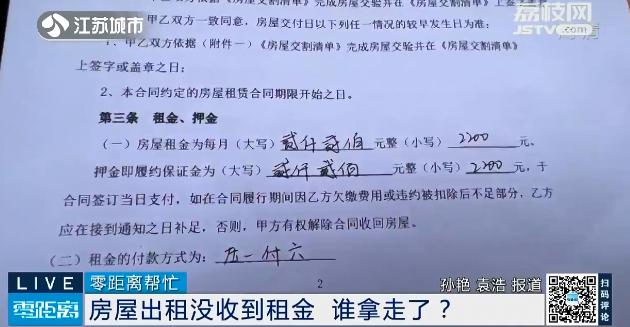 江苏城市
荔枝网
JSTV.com
甲乙双方一致同意，房屋交付日以下列任一情况的较早发生日为准：
1、甲乙双方依据（附件一）《房屋交割清单》完成房屋交验并在《房屋交割清单》
上签字或盖章之日；
2、本合同约定的房屋租赁合同期限开始之日。
第三条 租金、押金
（一）房屋租金为每月（大写）贰仟贰佰元整（小写）2200元。
押金即履约保证金为（大写）贰仟贰佰元整（小写）2200元，于
合同签订当日支付，如在合同履行期间因乙方欠缴费用或违约被扣除后不足部分，乙方
应在接到通知之日补足，否则，甲方有权解除合同收回房屋。
（二）租金的付款方式为：压一付六
2
LIVE 零距离帮忙 孙艳 袁浩 报道
零距离 房屋出租没收到租金 谁拿走了？
扫码评论